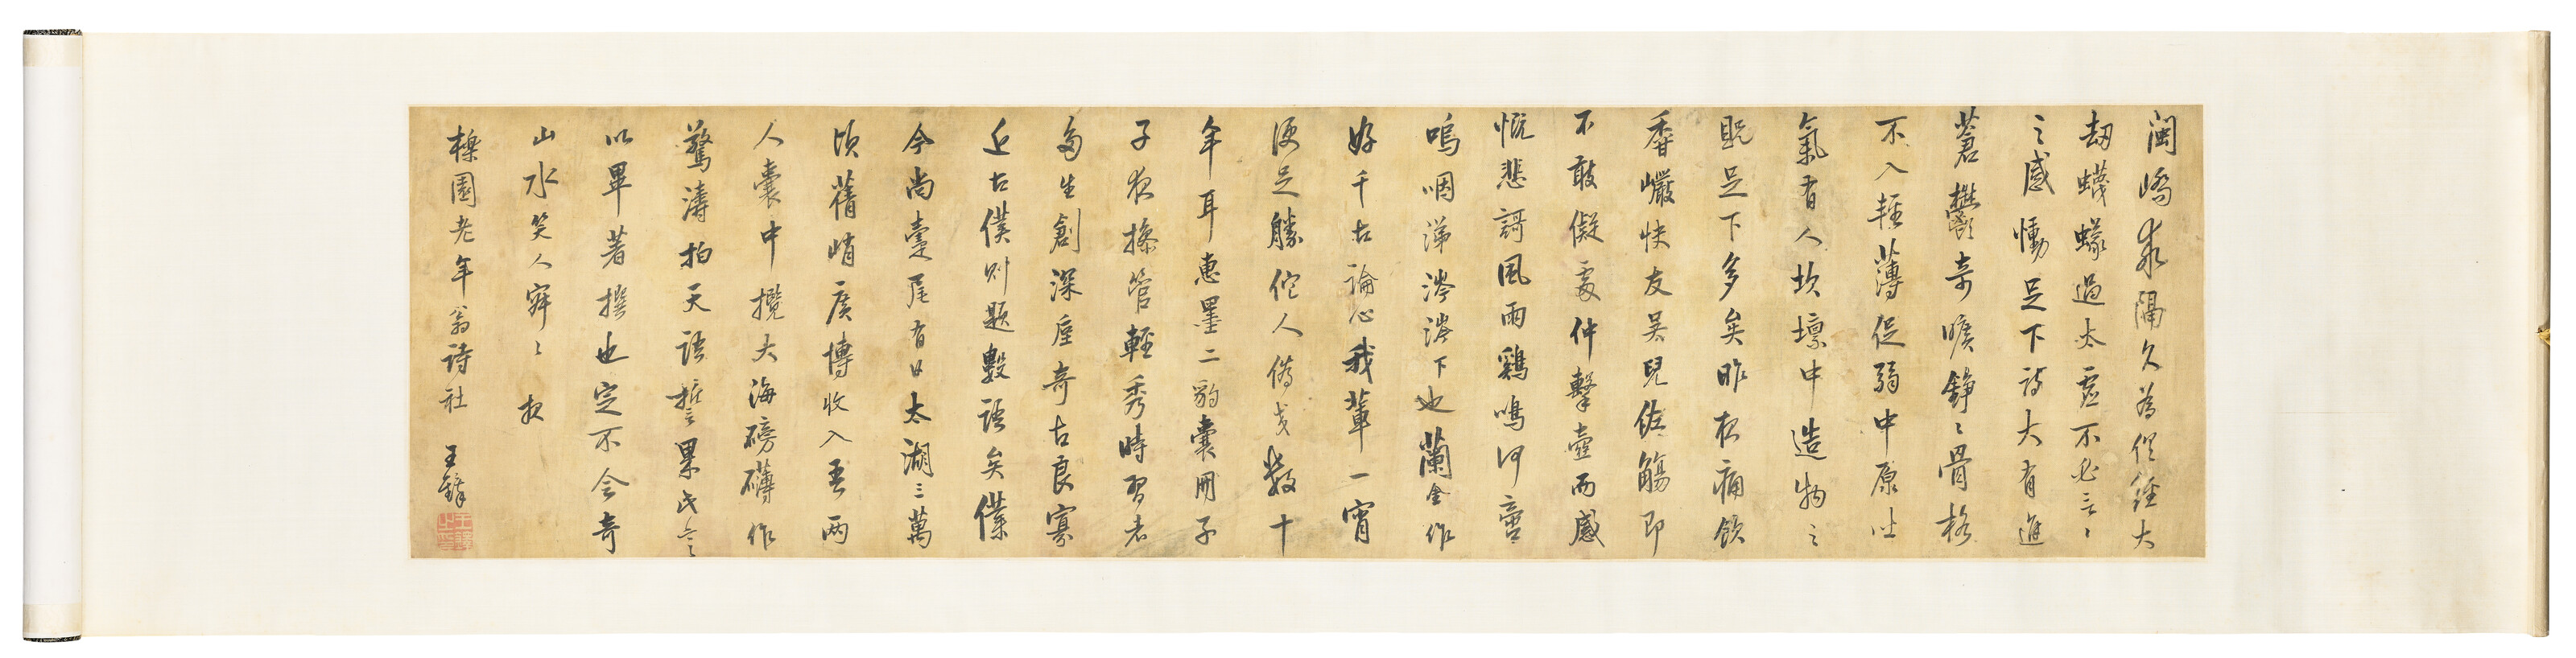 閩嶠求隔久為侄經大
劫蠛蠓過太虛不必言〻
之感慟足下詩大有進
蒼鬱奇曠錚〻骨格
不入輕薄促弱中原吐
氣有人坎壈中造物之
貺足下多矣昨夜痛飲
香巖快友吳兒佐觴即
不敢儗處仲擊壺而感
慨悲謌風雨鷄鳴何啻
嗚咽涕涔涔下也蘭舍作
好千古論心我輩一宵
便足勝佗人偽交數十
年耳惠墨二豹囊開子
子夜搽管輕秀時習者
為生創深厓奇古良寡
近古僕則題數語矣僕
今尚臺尾有日太湖三萬
頃舊峭廣博收入吾兩
人囊中攬大海磅礴作
驚濤拍天語誓累氏言
以畢著撰也定不令奇
山水笑人寂〻 夜
櫟園老年翁詩社 王鐸